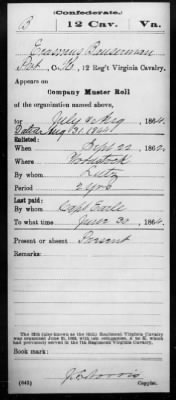 (Confederate.)
B 12 Cav. Va.
Erasmus Bauserman
Pvt, Co. B, 12 Reg't Virginia Cavalry.
Appears on
Company Muster Roll
of the organization named above,
for July & Aug, 1864.
Dated Aug 31. 1864
Enlisted:
When Sept 22, 1862.
Where Woodstock
By whom Lutz
Period 2 yrs
Last paid:
By whom Capt Earle
To what time June 30, 1864.
Present or absent Present
Remarks:
The 12th (also known as the 10th) Regiment Virginia Cavalry
was organized June 21, 1862, with ten companies, A to K, which
had previously served in the 7th Regiment Virginia Cavalry.
Book mark:
(642)
Copyist.